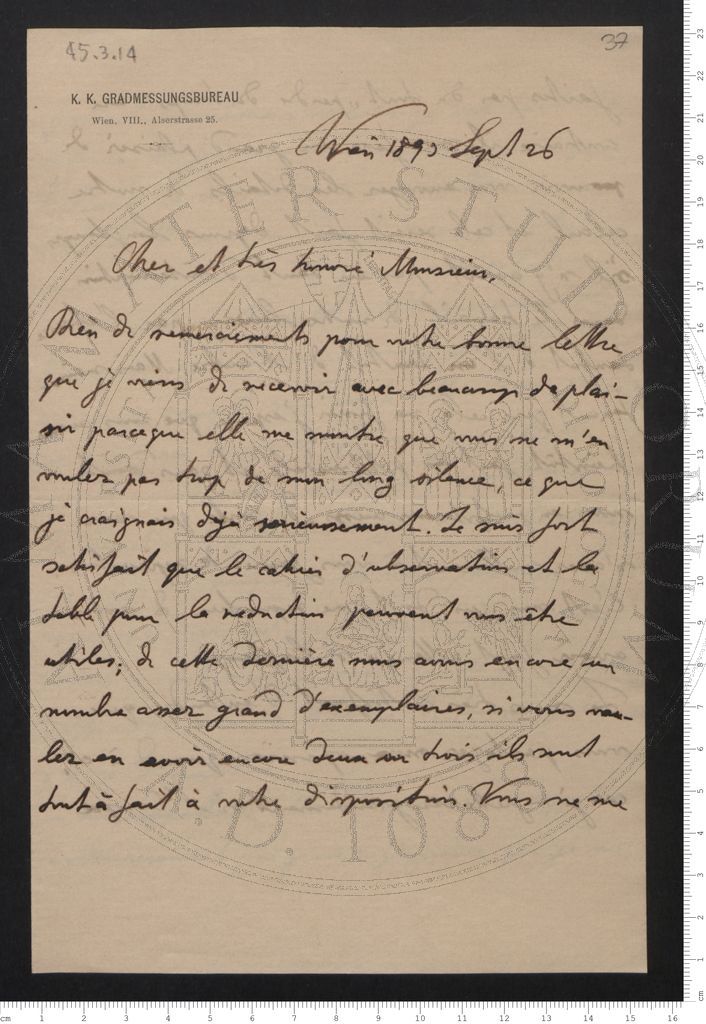 45.3.14
37
K. K. GRADMESSUNGSBUREAU
Wien, VIII., Alserstrasse 25.
Wien 1893 Sept 26
Cher et très honoré Monsieur,
Bien de remerciements pour votre bonne lettre
que je viens de recevoir avec beaucoup de plai-
sir parceque elle me montre que vous ne m'en
voulez pas trop de mon long silence, ce que
je craignais déjà serieusement. Je suis fort
satisfait que le cahier d'observation et la
table pour la reduction peuvent vous être
utiles; de cette dernière nous avons encore un
nombre assez grand d'exemplaires, si vous vou-
lez en avoir encore deux ou trois ils sont
tout à fait à votre disposition. Vous ne me
A.D. 1088